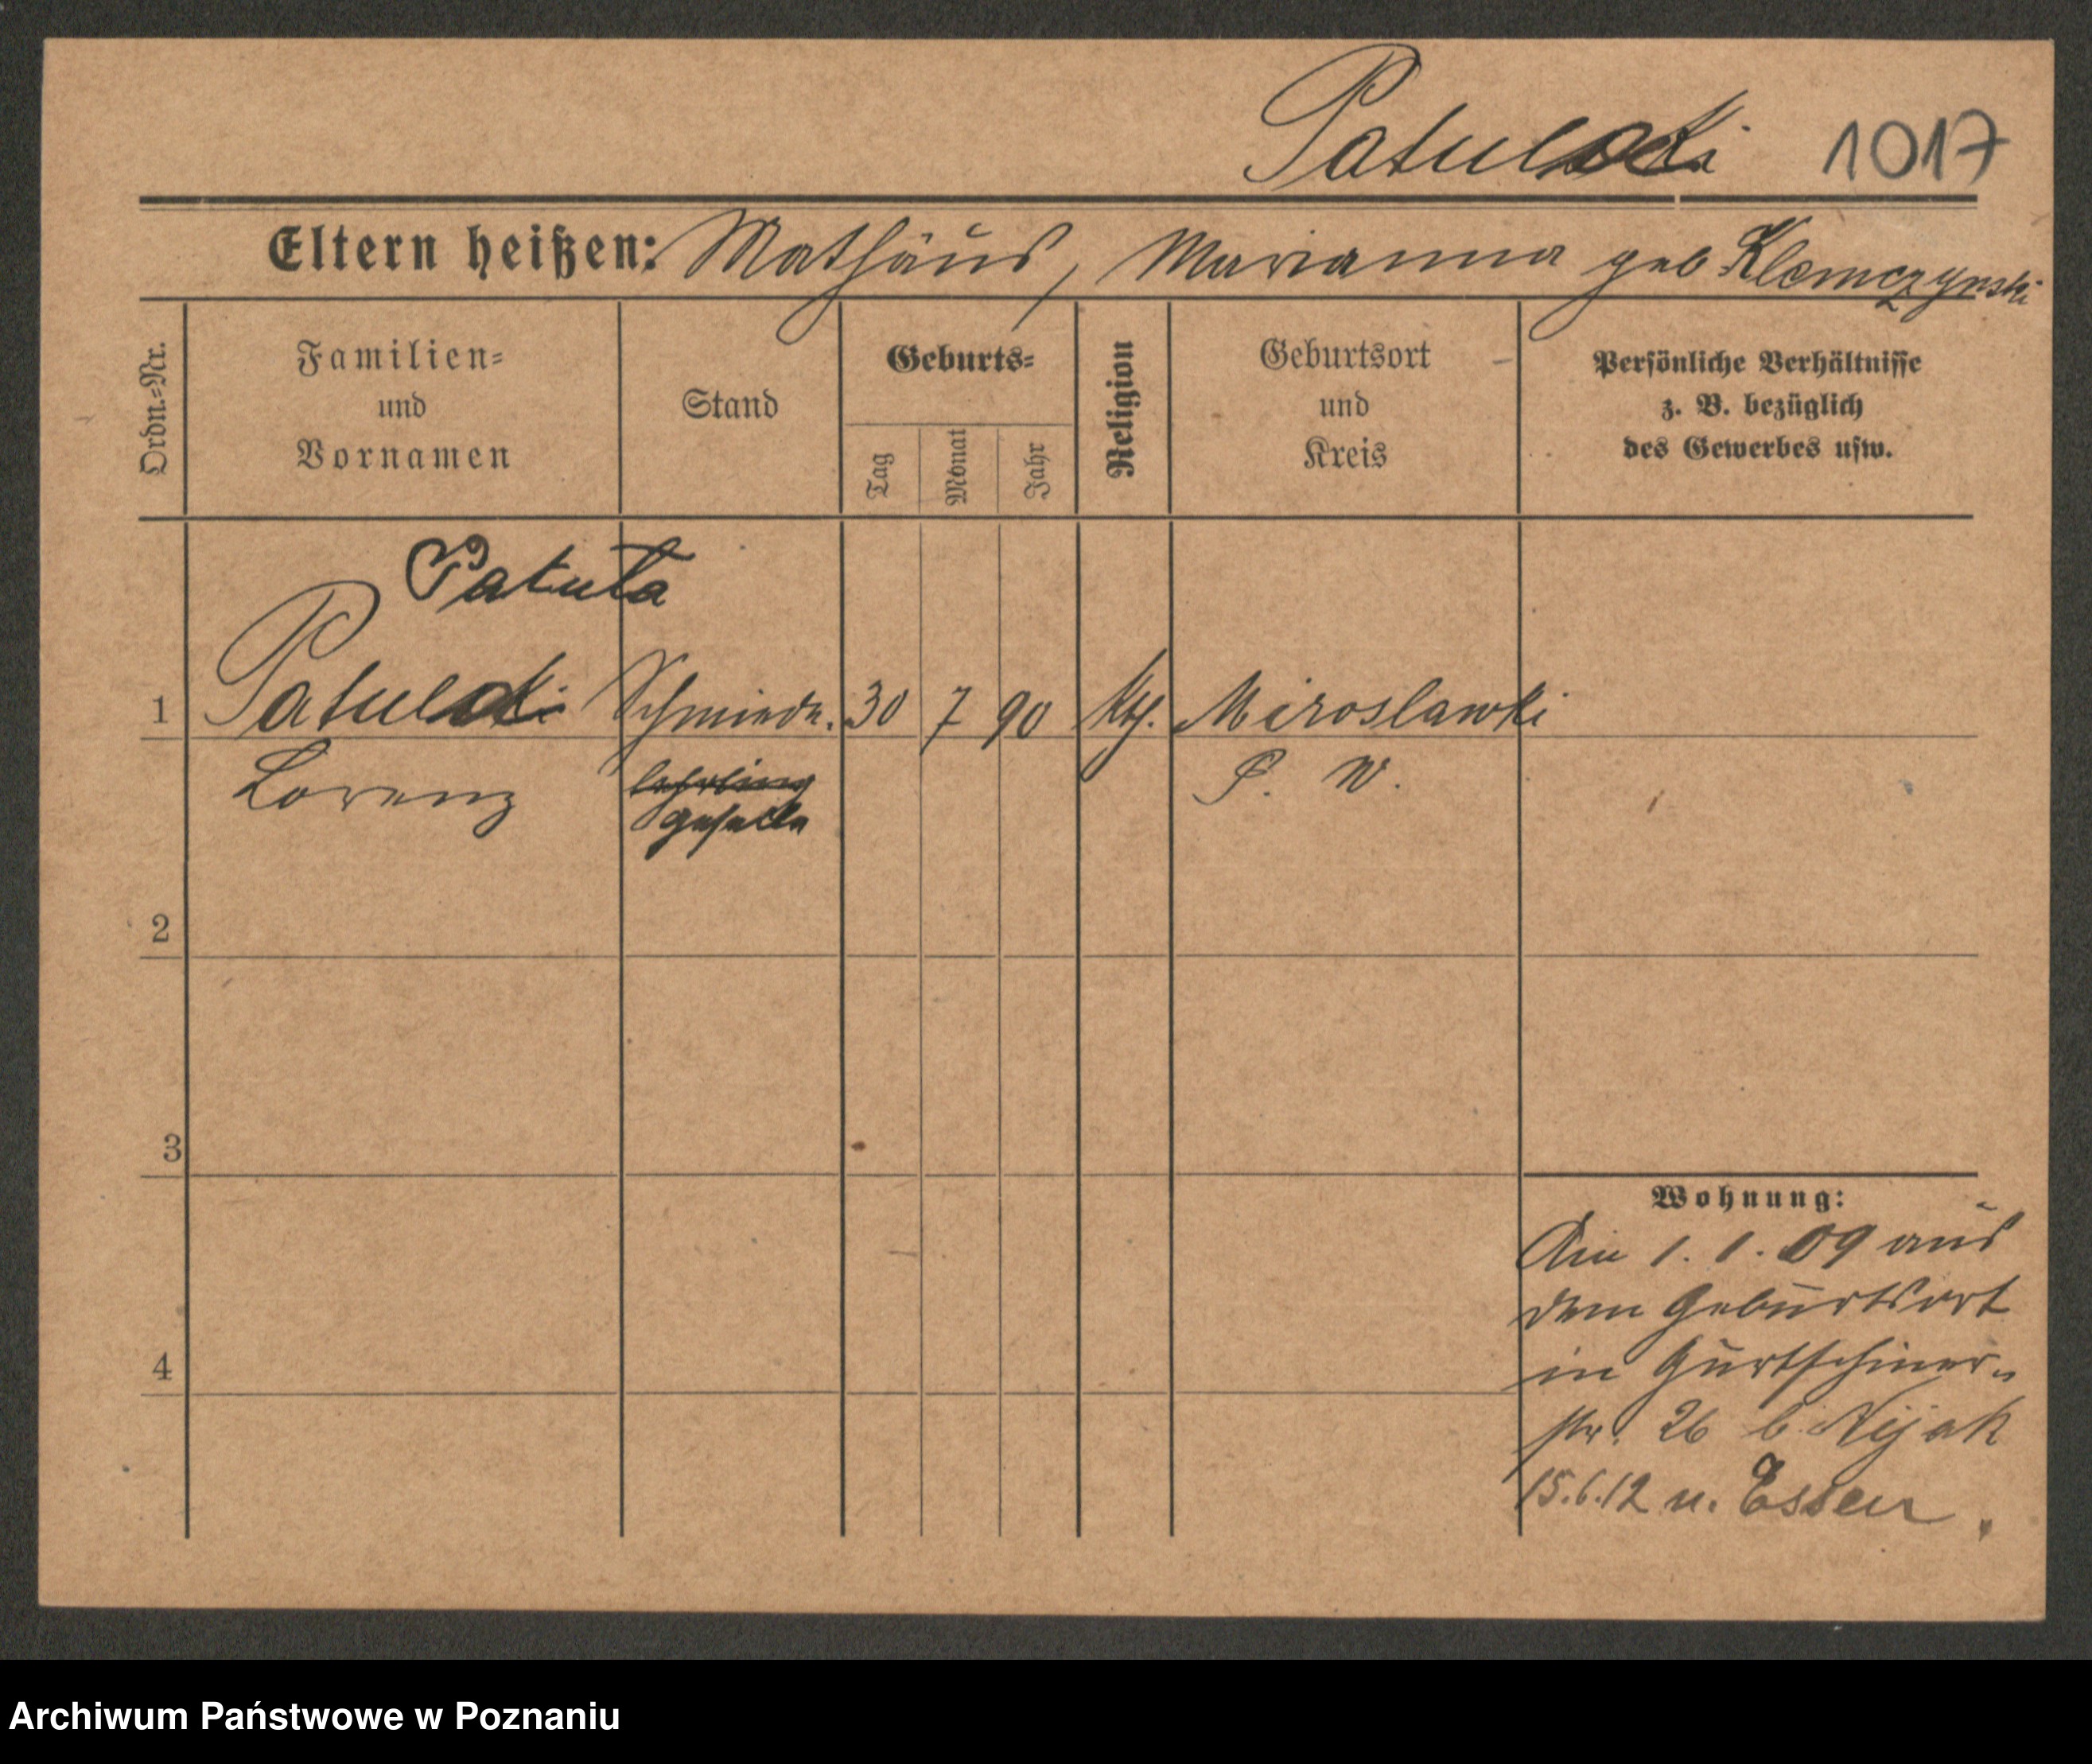 1017
Eltern heißen: Mathäus, Marianna geb Klemczynski
Ordn.-Nr.
Familien-
und
Vornamen
Stand
Geburts-
Tag
Monat
Jahr
Religion
Geburtsort
und
Kreis
Persönliche Verhältnisse
z. B. bezüglich
des Gewerbes usw.
Patuła
1 Schmiede. 30 7 90 kth. Miroslawki
Lorenz lehrling P. W.
geselle
2
3
4
Wohnung:
Am 1. 1. 09 aus
dem Geburtsort
in Gurtschiner-
str. 26 b. Nijak
15.6.12 n. Essen.
Archiwum Państwowe w Poznaniu